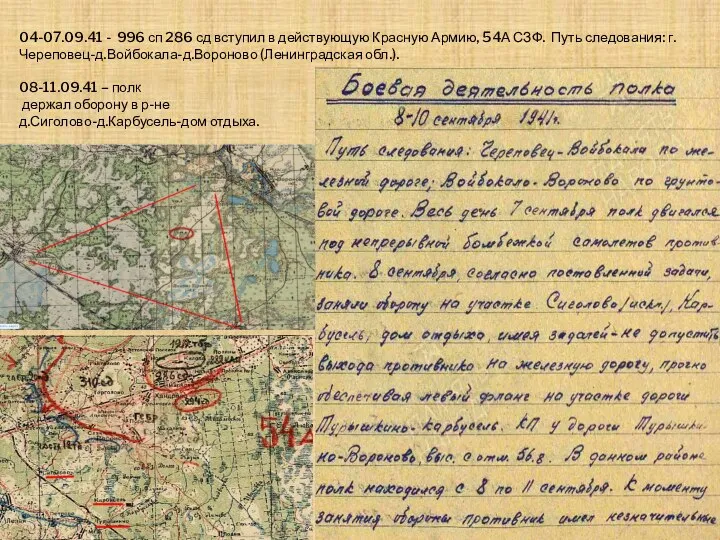 04-07.09.41 - 996 сп 286 сд вступил в действующую Красную Армию, 54А СЗФ. Путь следования: г.
Череповец-д.Войбокала-д.Вороново (Ленинградская обл.).
08-11.09.41 – полк
держал оборону в р-не
д.Сиголово-д.Карбусель-дом отдыха.
Боевая деятельность полка
8-10 сентября 1941г.
Путь следования: Череповец-Войбокала по же-
лезной дороге; Войбокало-Вороново по грунто-
вой дороге. Весь день 7 сентября полк двигался
под непрерывной бомбежкой самолетов против-
ника. 8 сентября, согласно поставленной задачи,
заняли оборону на участке Сиголово /искл/, Кар-
бусель, дом отдыха, имея задачей-не допустить
выхода противника на железную дорогу, прочно
обеспечивая левый фланг на участке дороги
Турышкино-Карбусель. КП у дороги Турышки-
но-Вороново, выс. с отм. 56,8. В данном районе
полк находился с 8 по 11 сентября. К моменту
занятия обороны противник имел незначительные
310сд
286сд
294сд
54А